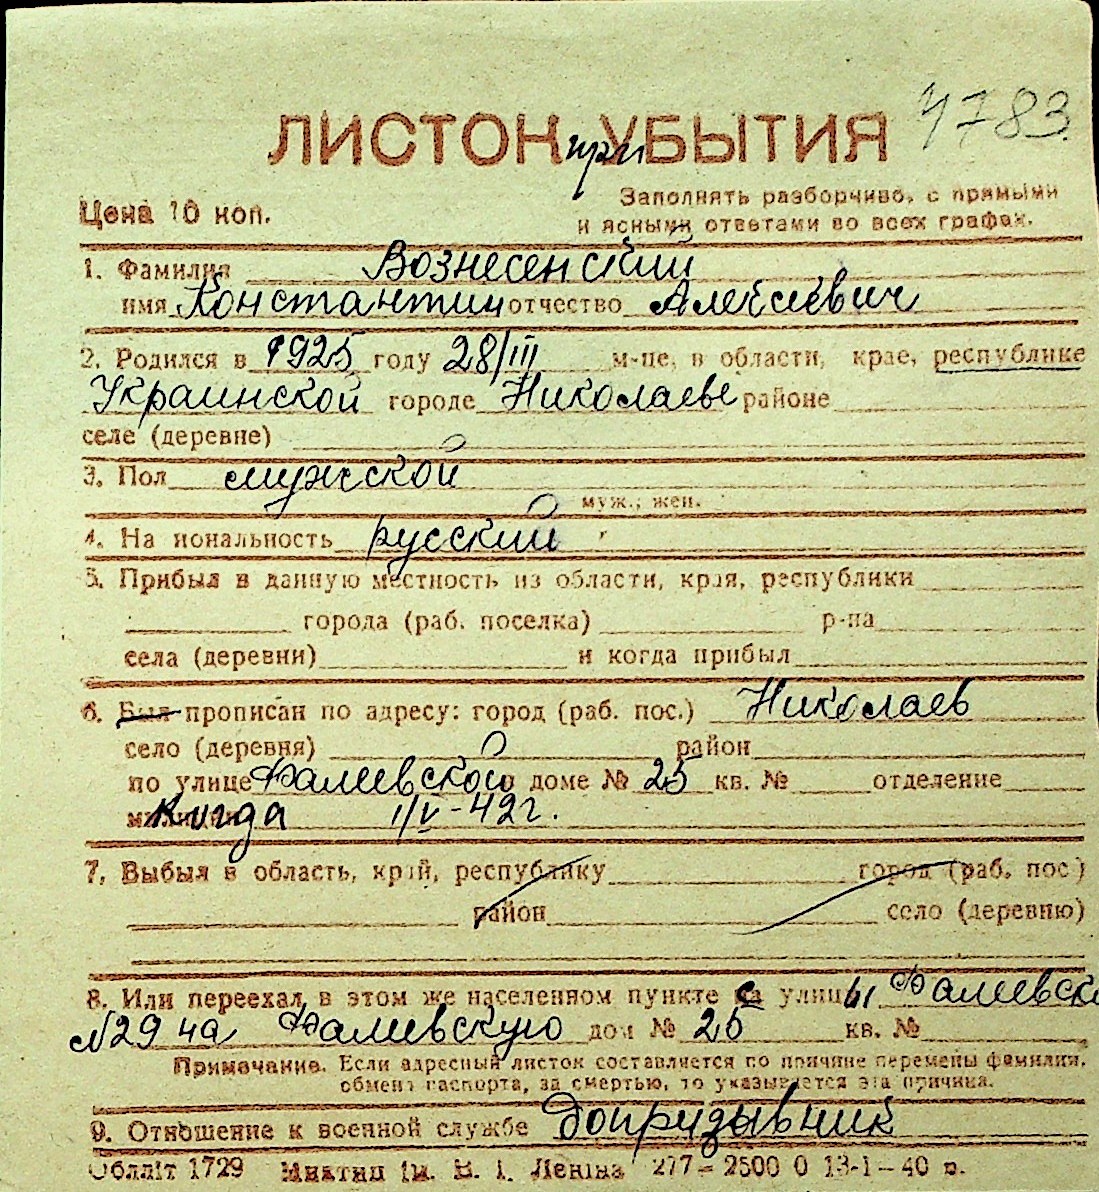 4783
ЛИСТОК при УБЫТИЯ
Цена 10 коп.
Заполнять разборчиво, с прямыми
и ясными ответами во всех графах.
1. Фамилия Вознесенский
имя Константин отчество Алексеевич
2. Родился в 1925 году 28/III м-це, в области, крае, республике
Украинской городе Николаеве районе
селе (деревне)
3. Пол мужской
муж., жен.
4. На иональность русский
5. Прибыл в данную местность из области, края, республики
города (раб. поселка) р-на
села (деревни) и когда прибыл
6. Был прописан по адресу: город (раб. пос.) Николаев
село (деревня) район
по улице Фалеевской доме № 25 кв. № отделение
Когда 1/V-42 г.
7. Выбыл в область, край, республику город (раб. пос.)
район село (деревню)
8. Или переехал в этом же населенном пункте с улицы Фалеевск
№29 на Фалеевскую дом № 25 кв. №
Примечание. Если адресный листок составляется по причине перемены фамилии,
обмена паспорта, за смертью, то указывается эта причина.
9. Отношение к военной службе допризывник
Облліт 1729 ім. В. І. Леніна 277 – 2500 0 13-1-40 р.